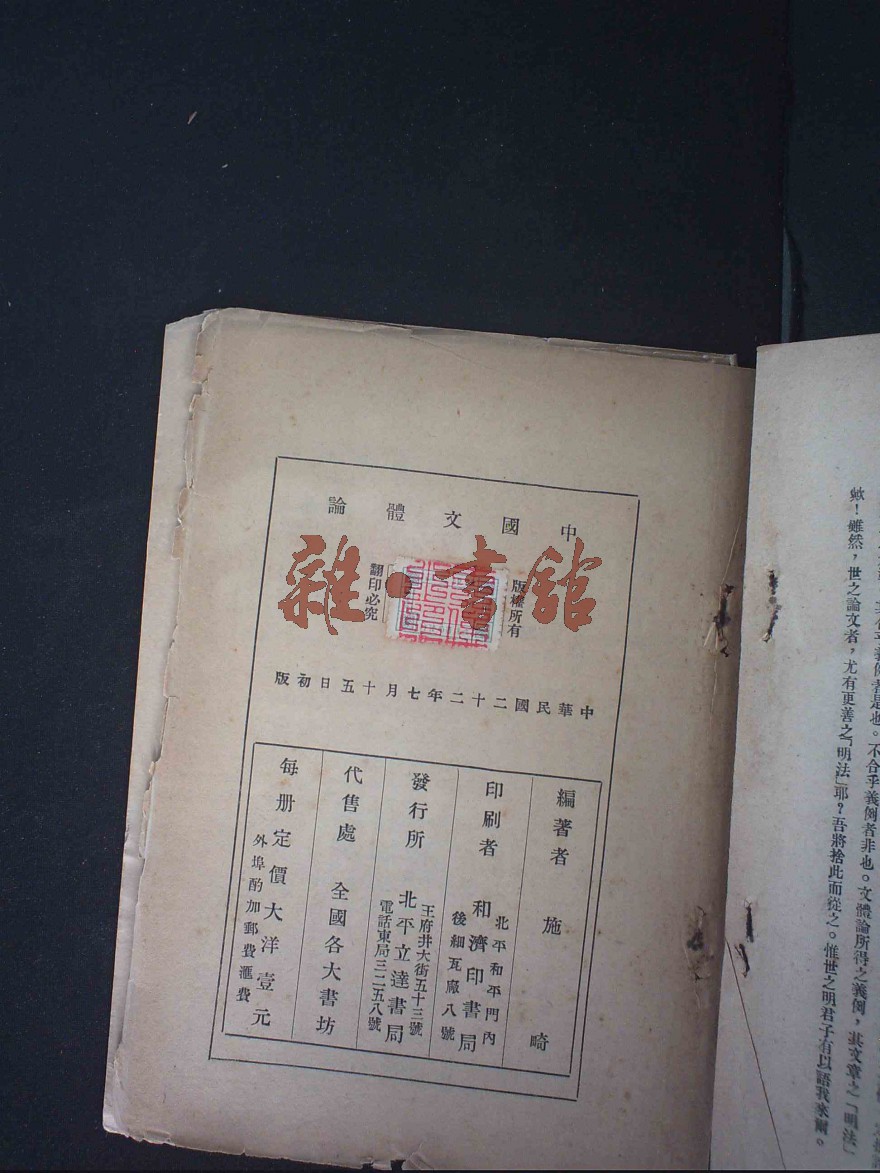 中國文體論
版權所有
翻印必究
雜·書館
中華民國二十二年七月十五日初版
編著者 施畸
印刷者 和濟印書局
北平和平門內
後細瓦廠八號
發行所 北平立達書局
王府井大街五十三號
電話東局三二五八號
代售處 全國各大書坊
每册定價大洋壹元
外埠酌加郵費滙費
不合乎義例者非也。文體論所得之義例，其文章之「明法」
歟！雖然，世之論文者，尤有更善之「明法」耶？吾將捨此而從之。惟世之明君子有以語我來爾。